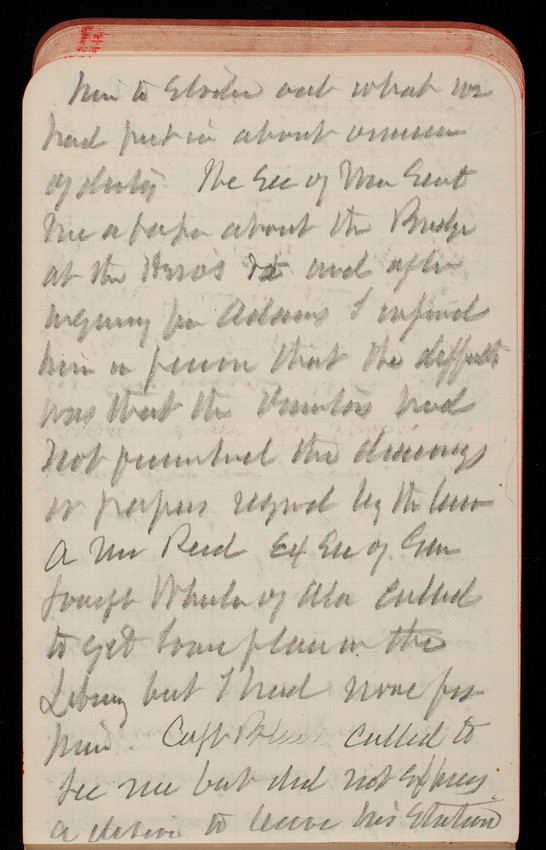 him to strike out what we
had put in about
of duty The Sec of War sent
me a paper about the Bridge
at the and after
inquiry for Adams I informed
him in person that the difficulty
was that the had
not presented the drawings
or papers required by the law
A Mr Reed Ex Sec of Gen
Joseph Wheeler of Ala called
to get some place in the
Library but I had none for
him. Capt called to
see me but did not Express
a desire to leave his Station